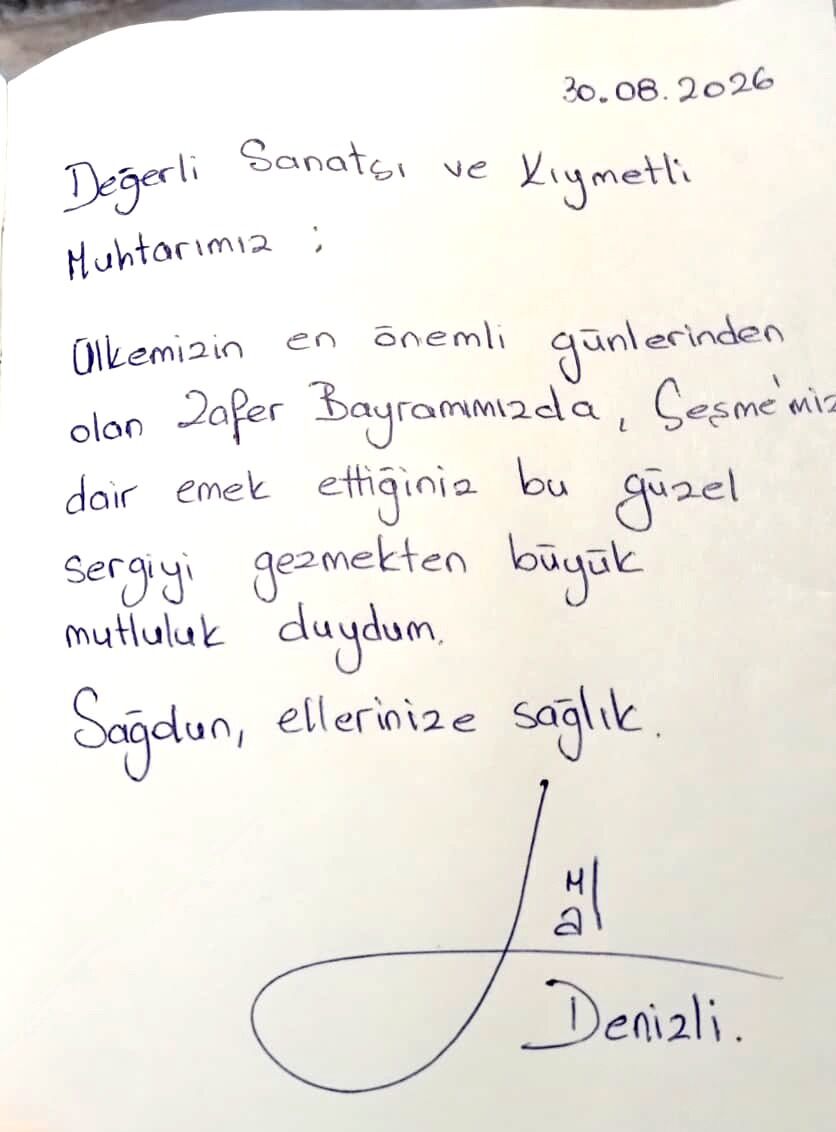 30.08.2026
Değerli Sanatçı ve Kıymetli
Muhtarımız ;
Ülkemizin en önemli günlerinden
olan Zafer Bayramımızda, Çeşme'miz
dair emek ettiğiniz bu güzel
sergiyi gezmekten büyük
mutluluk duydum.
Sağdun, ellerinize sağlık.
Denizli.